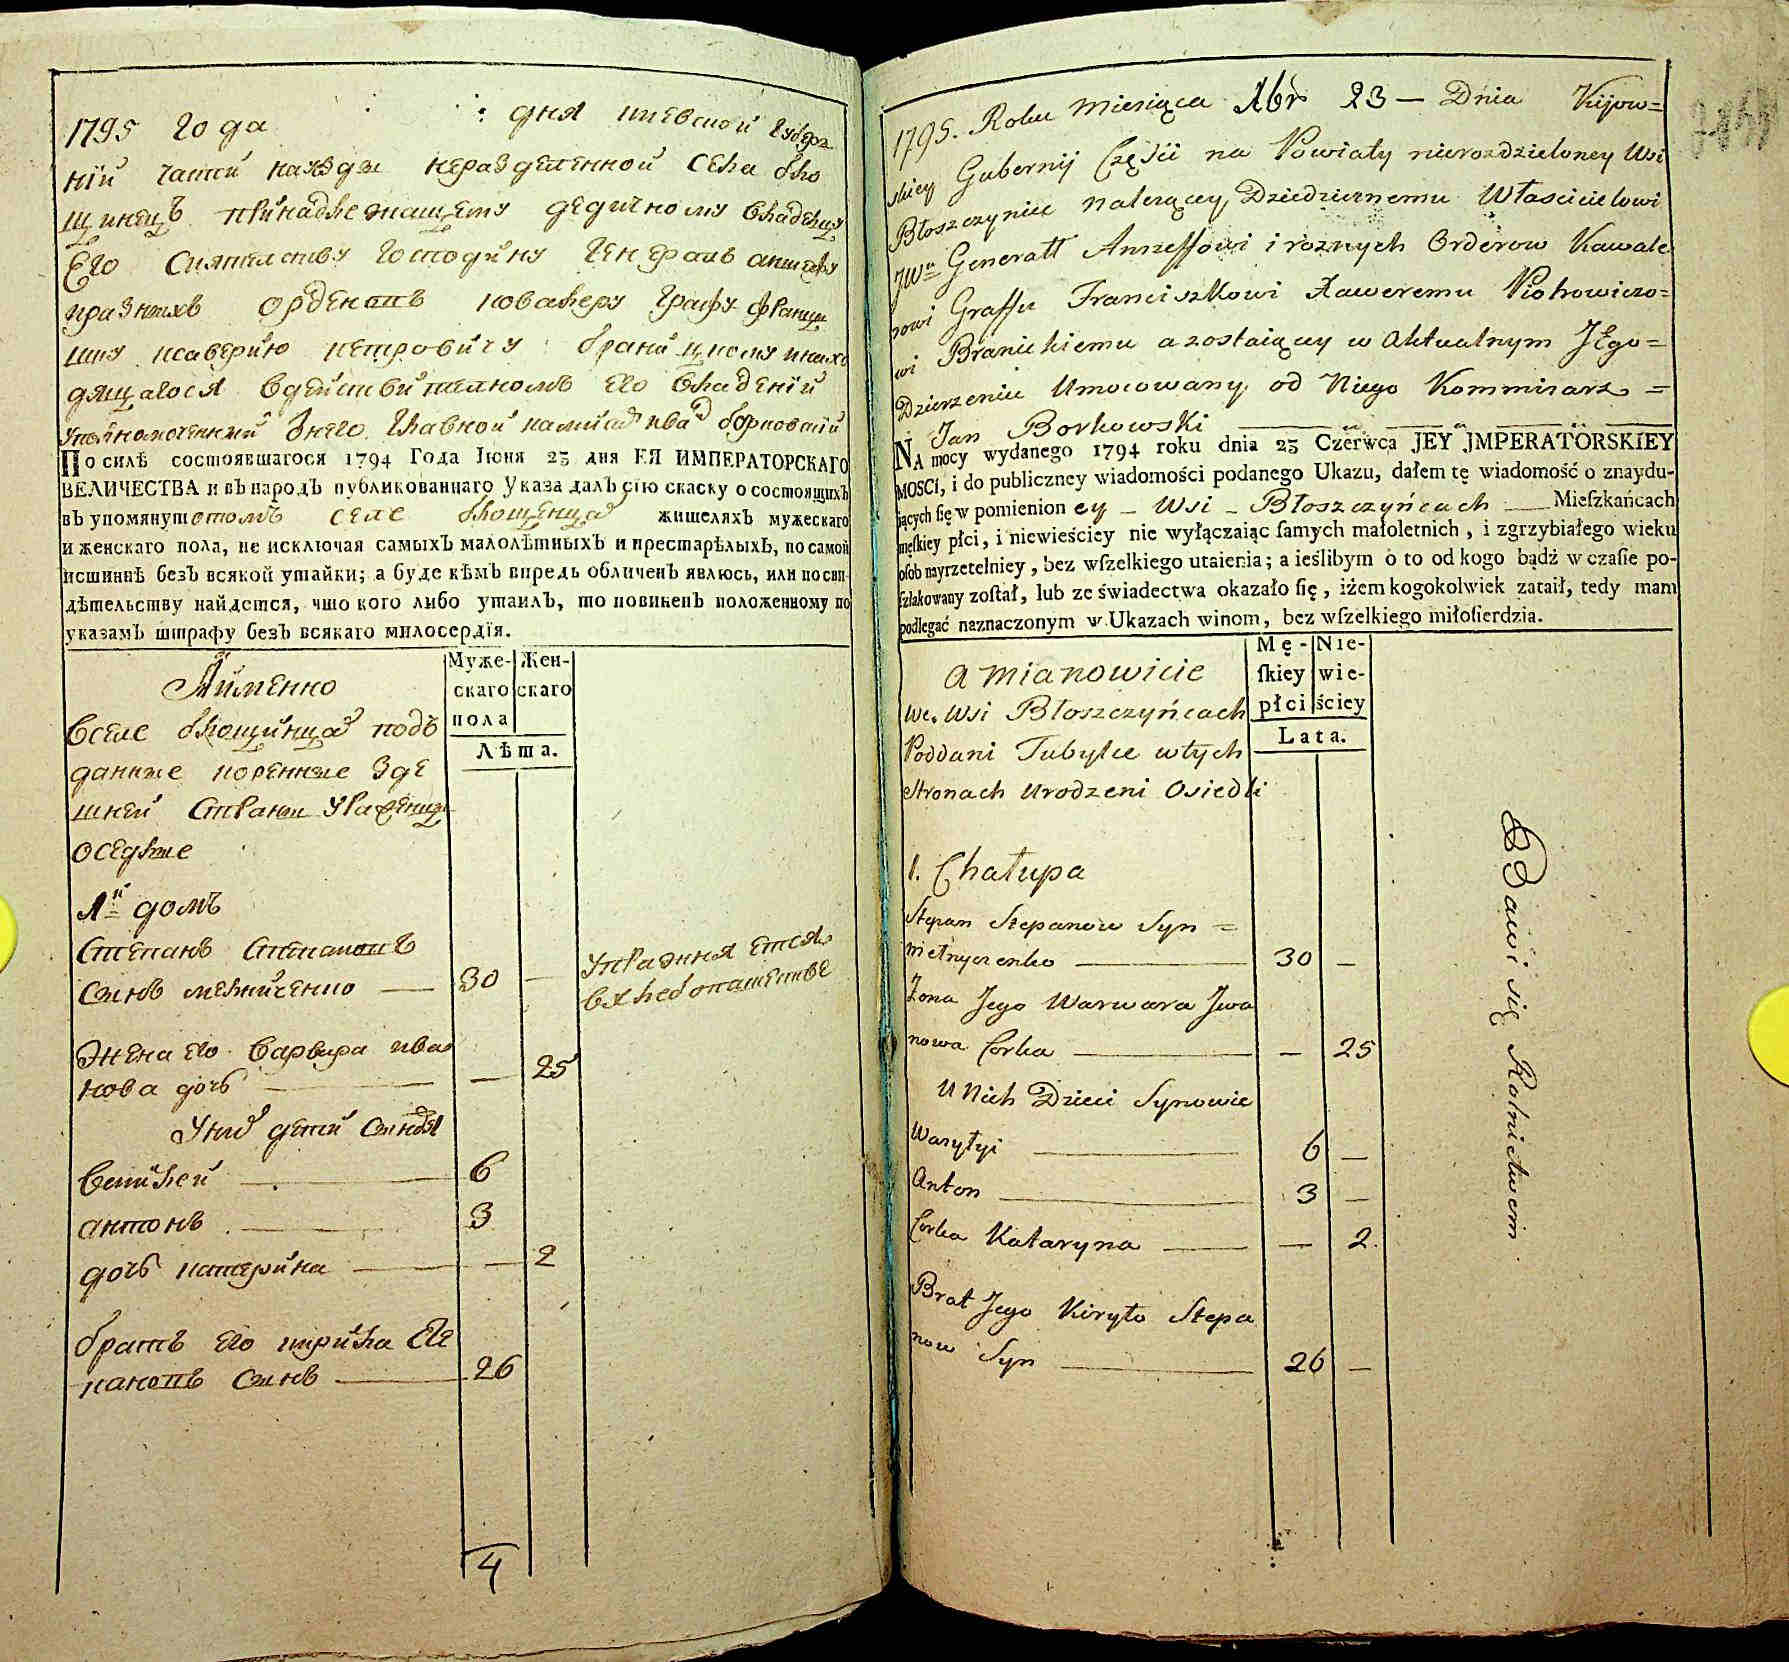 1795 года дня киевской губер
нїи части на уѣзды неразделенной села бло
щинецъ принадлежащему дедичному владелцу
Его Сиятелству Господину Генералъ аншефу
и разныхъ орденовъ кавалеру Графу Франци
шку ксаверию петровичу браницкому и нахо
дящагося в действителномъ его владенїи
уполномоченный от него Главной камисаръ иван борковский
По силѣ состоявшагося 1794 Года Iюня 23 дня ЕЯ ИМПЕРАТОРСКАГО
ВЕЛИЧЕСТВА и въ народъ публикованнаго Указа далъ сїю скаску о состоящихъ
въ упомянутотомъ селе блощинцах жителяхъ мужескаго
и женскаго пола, не исключая самыхъ малолѣтныхъ и престарѣлыхъ, по самой
истиннѣ безъ всякой утайки; а буде кѣмъ впредь обличенъ явлюсь, или по сви-
дѣтельству найдется, что кого либо утаилъ, то повиненъ положенному по
указамъ штрафу безъ всякаго милосердїя.
Аименно
Муже- Жен-
скаго скаго
пола
Лѣта.
Вселе блощинцах подъ
данные коренные зде
шней Страны уроженцы
оседлые
1й домъ
Степанъ Степановъ
сынъ мелниченко — 30 —
Упражняется
в хлебопашестве
Жена его варвара ива
нова дочь — — 25
У них дети Сыновя
василей — 6
антонъ — 3
дочь катерина — — 2
братъ его кирила Сте
пановъ Сынъ — 26
4
1795. Roku Miesiąca Xbr 23 — Dnia Kijow=
skiey Gubernij Części na Powiaty nierozdzieloney Wsi
Błoszczyniec należącey Dziedzicznemu Włascicielowi
JWu Generałł Anszeffowi i roznych Orderow Kawale
rowi Graffu Franciszkowi Xaweremu Piotrowiczo=
wi Branickiemu a zostaiącey w Aktualnym JEgo=
Dzierzeniu Umocowany od Niego Kommisarz =
Jan Borkowski
NA mocy wydanego 1794 roku dnia 23 Czerwca JEY JMPERATORSKIEY
MOSCI, i do publiczney wiadomości podanego Ukazu, dałem tę wiadomość o znaydu-
iących ſię w pomienion ey — Wsi — Błoszczyńcach — Mieſzkańcach
męſkiey płci, i niewieściey nie wyłączaiąc ſamych małoletnich, i zgrzybiałego wieku
oſob nayrzetelniey, bez wſzelkiego utaienia; a ieślibym o to od kogo bądź w czaſie po-
ſzlakowany zoſtał, lub ze świadectwa okazało ſię, iżem kogokolwiek zataił, tedy mam
podlegać naznaczonym w Ukazach winom, bez wſzelkiego miłoſierdzia.
A mianowicie
Mę- Nie-
ſkiey wie-
płci ściey
Lata.
We. Wsi Błoszczyńcach
Poddani Tubylce wtych
Stronach Urodzeni Osiedli
1. Chałupa
Stepan Stepanow Syn =
Melnyczenko — 30 —
Żona Jego Warwara Jwa
nowa Corka — — 25
U Nich Dzieci Synowie
Wasyłyi — 6 —
Anton — 3 —
Corka Kataryna — — 2.
Brat Jego Kiryło Stepa
now Syn — 26 —
Bawi się Rolnictwem